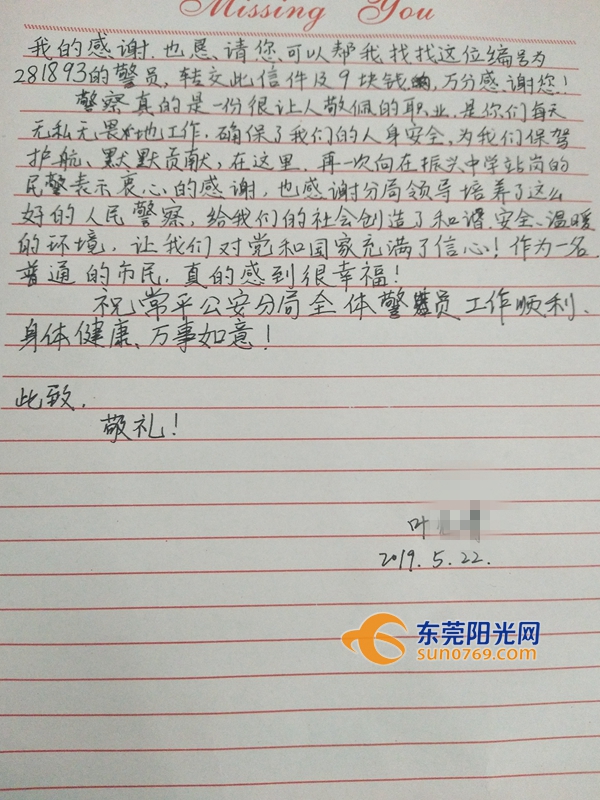 Missing You
我的感谢.也恳请您可以帮我找找这位编号为
281893的警员,转交此信件及9块钱,万分感谢您!
警察真的是一份很让人敬佩的职业.是你们每天
无私无畏地工作,确保了我们的人身安全,为我们保驾
护航、默默贡献,在这里.再一次向在振兴中学站岗的
民警表示衷心的感谢,也感谢分局领导培养了这么
好的人民警察,给我们的社会创造了和谐、安全、温暖
的环境,让我们对党和国家充满了信心!作为一名
普通的市民,真的感到很幸福!
祝常平公安分局全体警员工作顺利、
身体健康、万事如意!
此致.
敬礼!
叶
2019.5.22.
东莞阳光网
sun0769.com